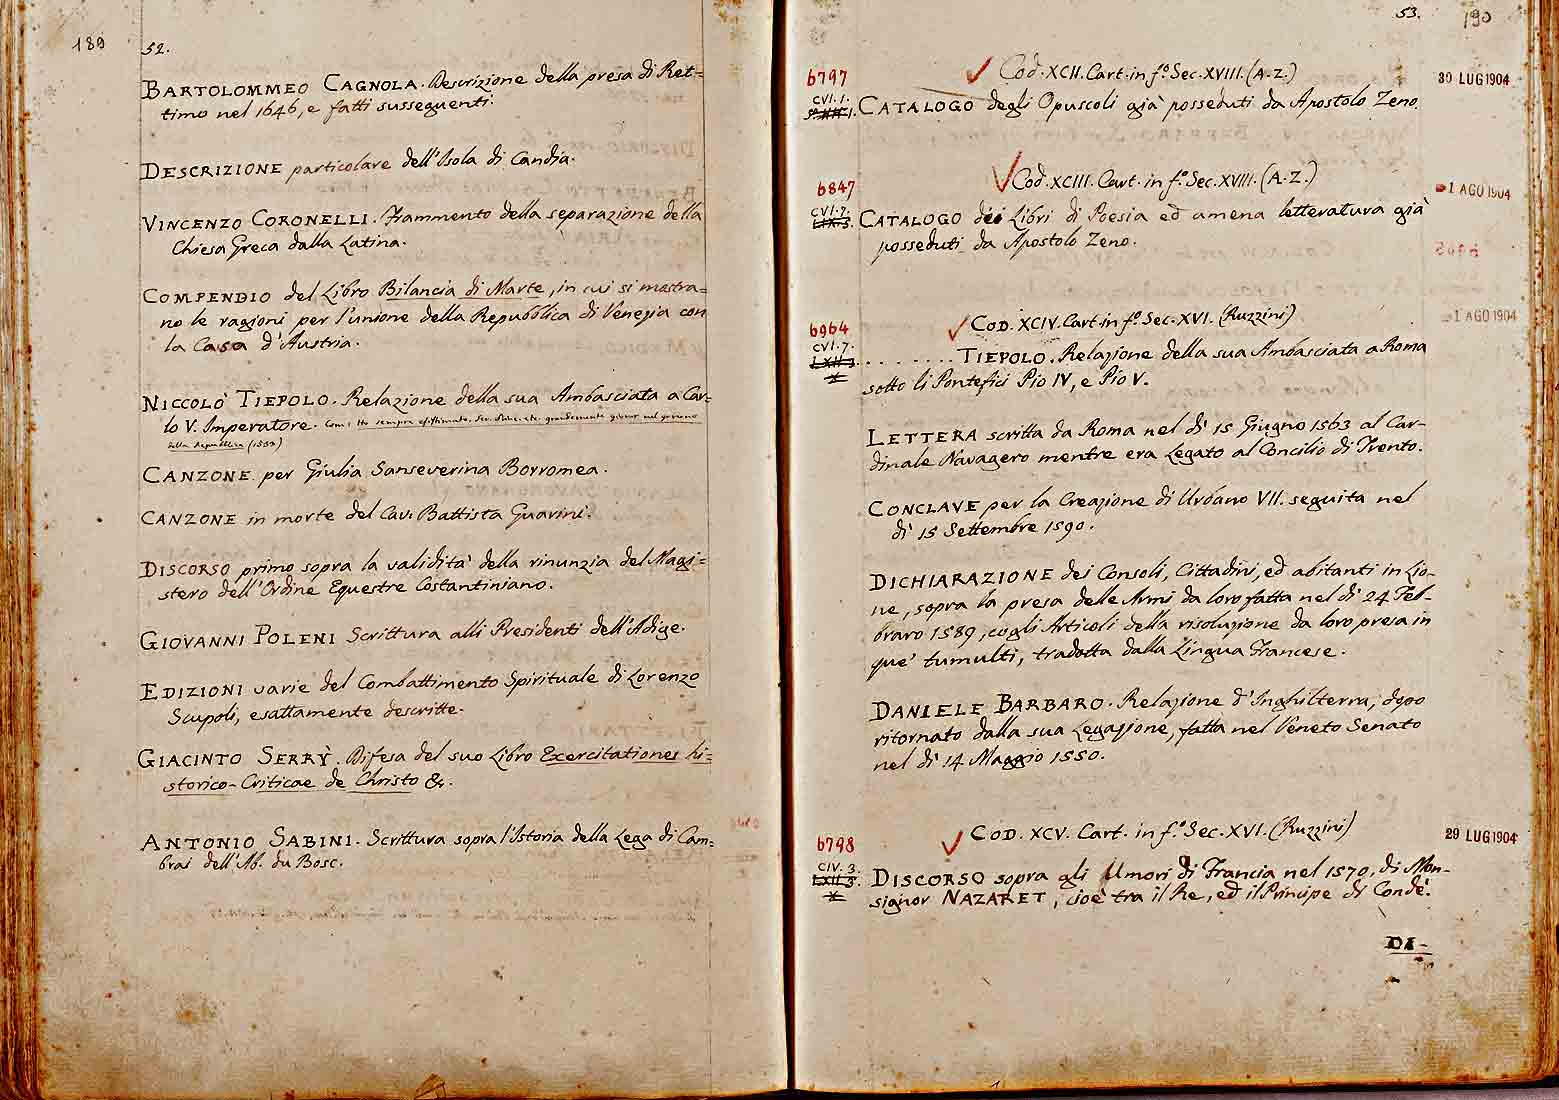 189
52.
BARTOLOMMEO CAGNOLA. Descrizione della presa di Ret=
timo nel 1646, e fatti susseguenti.
DESCRIZIONE particolare dell'Isola di Candia.
VINCENZO CORONELLI. Frammento della separazione della
Chiesa Greca dalla Latina.
COMPENDIO del Libro Bilancia di Marte, in cui si mostra=
no le ragioni per l'unione della Repubblica di Venezia con
la Casa d'Austria.
NICCOLÒ TIEPOLO. Relazione della sua Ambasciata a Car=
lo V. Imperatore. Com: Ho sempre
della Republica (1532)
CANZONE per Giulia Sanseverina Borromea.
CANZONE in morte del Cav: Battista Guarini.
DISCORSO primo sopra la validità della rinunzia del Magi=
stero dell'Ordine Equestre Costantiniano.
GIOVANNI POLENI Scrittura alli Presidenti dell'Adige.
EDIZIONI varie del Combattimento Spirituale di Lorenzo
Scupoli, esattamente descritte.
GIACINTO SERRŸ. Difesa del suo Libro Exercitationes hi=
storico-Criticae de Christo &.
ANTONIO SABINI. Scrittura sopra l'Istoria della Lega di Cam=
brai dell'Ab. du Bosc.
53.
190
6797
Cod. XCII. Cart. in f.º Sec. XVIII. (A.Z.)
30 LUG 1904
CVI. 1.
CATALOGO degli Opuscoli già posseduti da Apostolo Zeno.
6847
Cod. XCIII. Cart. in f.º Sec. XVIII. (A.Z.)
-1 AGO 1904
CVI. 2.
CATALOGO dei Libri di Poesia ed amena letteratura già
posseduti da Apostolo Zeno.
6964
COD. XCIV. Cart. in f.º Sec. XVI. (Ruzzini)
-1 AGO 1904
CVI. 7.
. . . . . . . . TIEPOLO. Relazione della sua Ambasciata a Roma
sotto li Pontefici Pio IV, e Pio V.
LETTERA scritta da Roma nel dì 15 Giugno 1563 al Car-
dinale Navagero mentre era Legato al Concilio di Trento.
CONCLAVE per la Creazione di Urbano VII. seguita nel
dì 15 Settembre 1590.
DICHIARAZIONE dei Consoli, Cittadini, ed abitanti in Lio-
ne, sopra la presa delle Armi da loro fatta nel dì 24 Feb-
braro 1589, cogli Articoli della risoluzione da loro presa in
que' tumulti, tradotta dalla Lingua Francese.
DANIELE BARBARO. Relazione d'Inghilterra, dopo
ritornato dalla sua Legazione, fatta nel Veneto Senato
nel dì 14 Maggio 1550.
6798
COD. XCV. Cart. in f.º Sec. XVI. (Ruzzini)
29 LUG 1904
CIV. 3.
DISCORSO sopra gli Umori di Francia nel 1570, di Mon-
signor NAZARET, cioè tra il Re, ed il Principe di Condè.
DI-